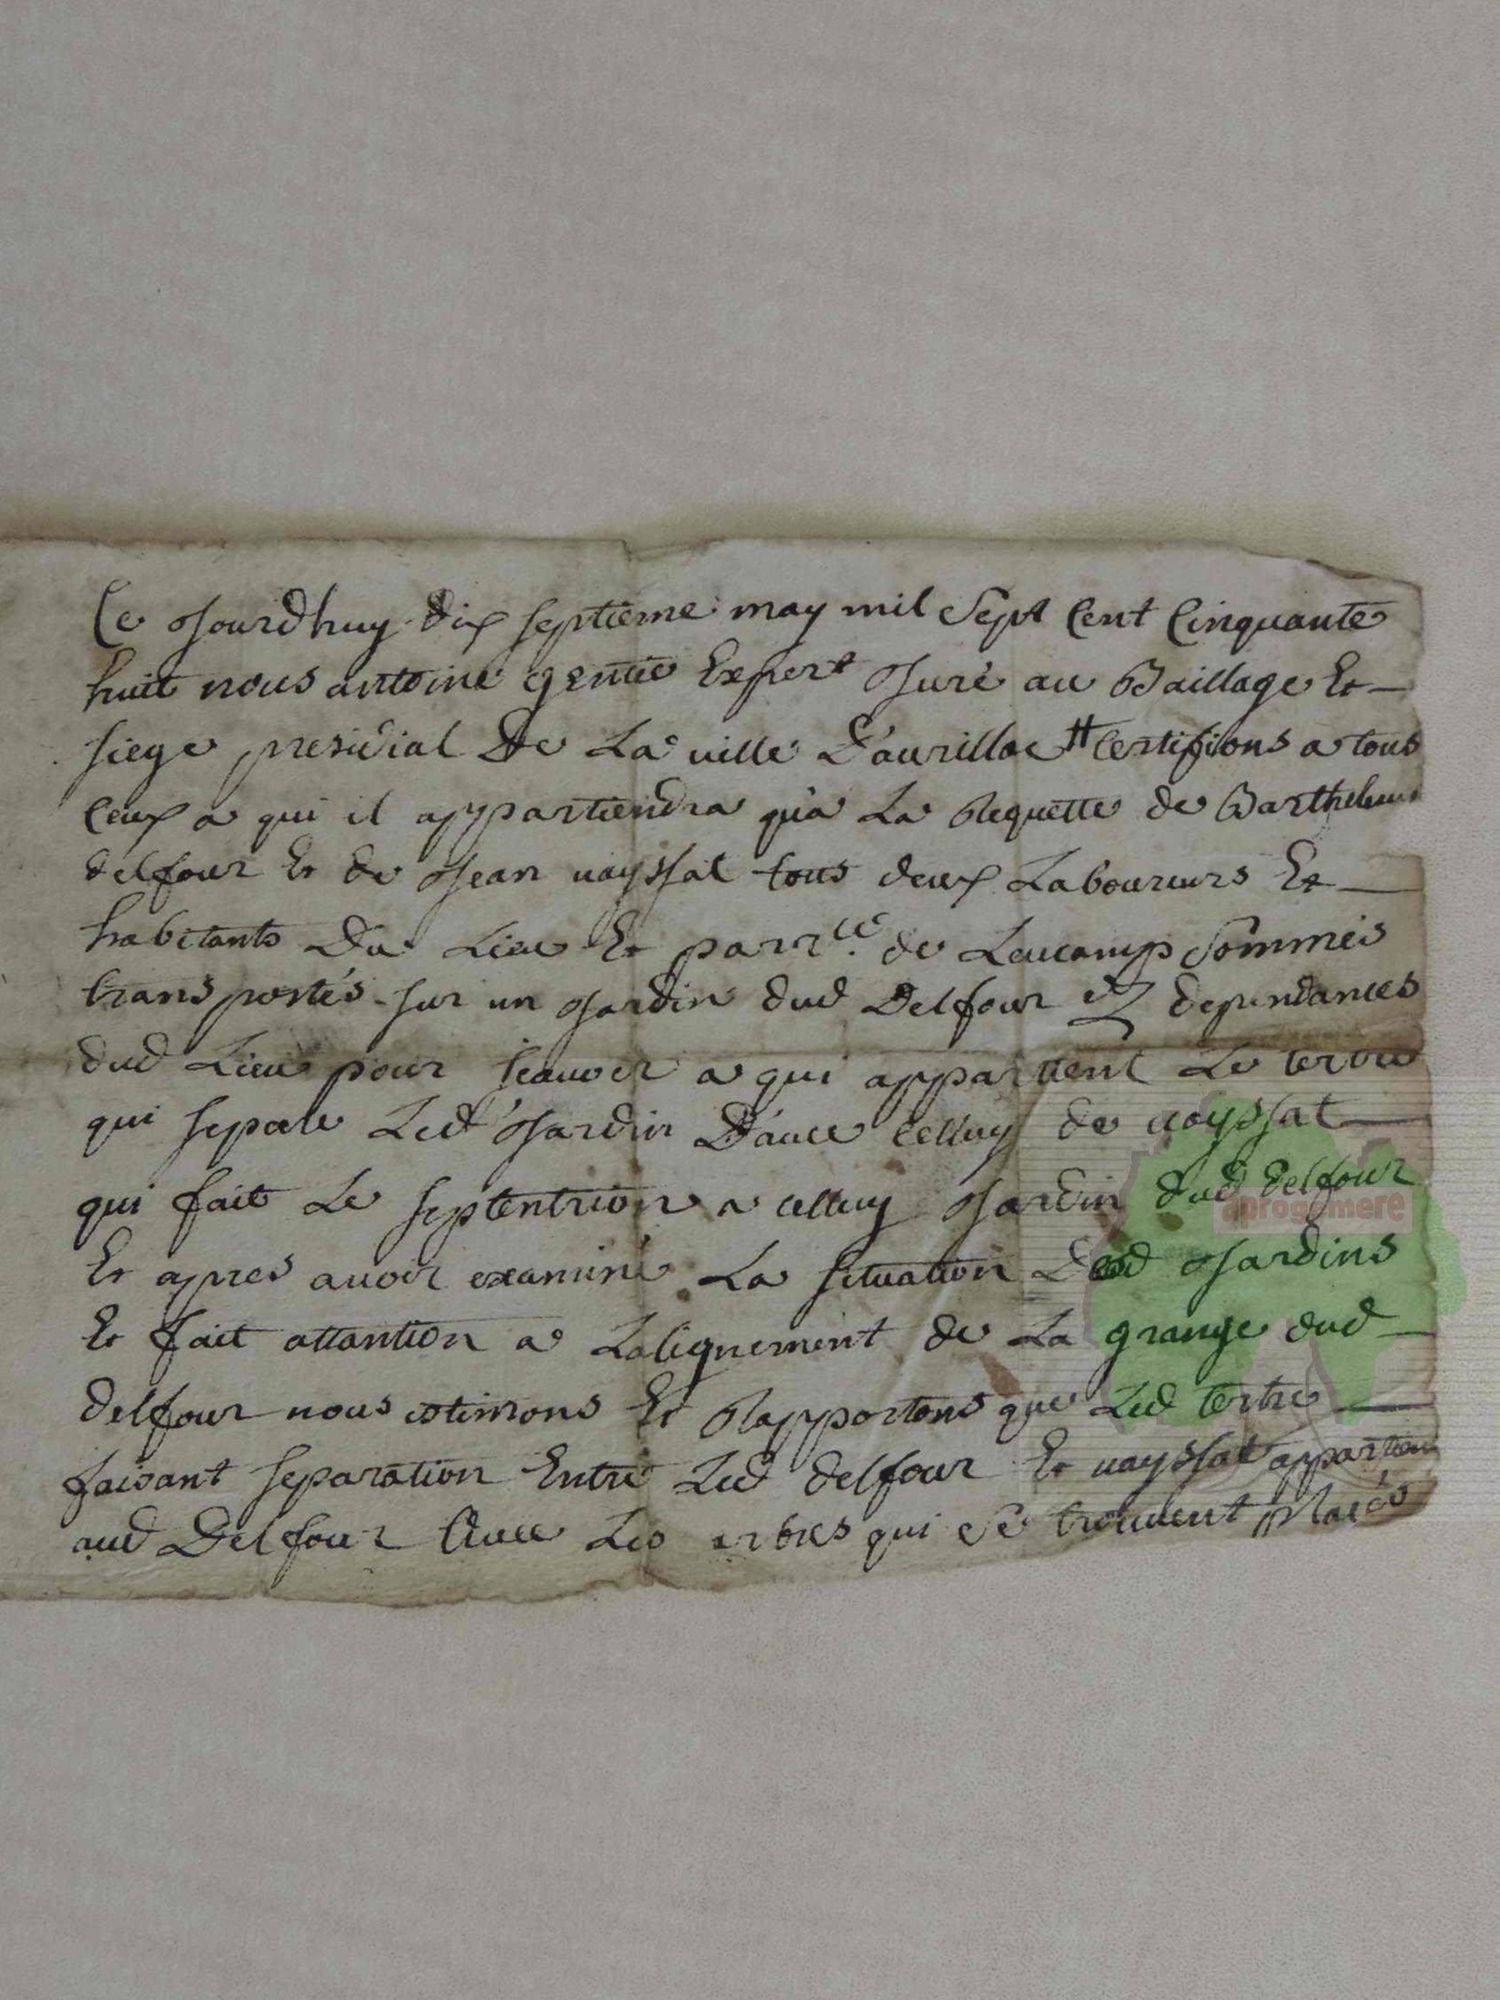 Ce Jourdhuy dix septieme may mil Sept Cent Cinquante
huit nous antoine gentie Expert Juré au Baillage Et
siege presidial De La ville D'aurillac Certifions a tous
Ceux a qui il appartiendra qu'a La Requette de Barthelemi
delfour Et de Jean vayssat tous deux Laboureurs Et
habitants Du Lieu Et parr.ce de Leucamp Sommes
transportés sur un Jardin dud Delfour Et dependances
dud Lieu pour scavoir a qui appartient Le tertre
qui separe Led Jardin D'avec Celluy de vayssat
qui fait Le septentrion a celluy Jardin dud delfour
Et apres avoir examiné La situation Desd Jardins
Et fait attantion a Lalignement de La grange dud
delfour nous estimons Et Rapportons que Led tertre
faisant separation Entre Led delfour Et vayssat appartien
aud Delfour Avec Les arbres qui se trouvent placés
aprogemere